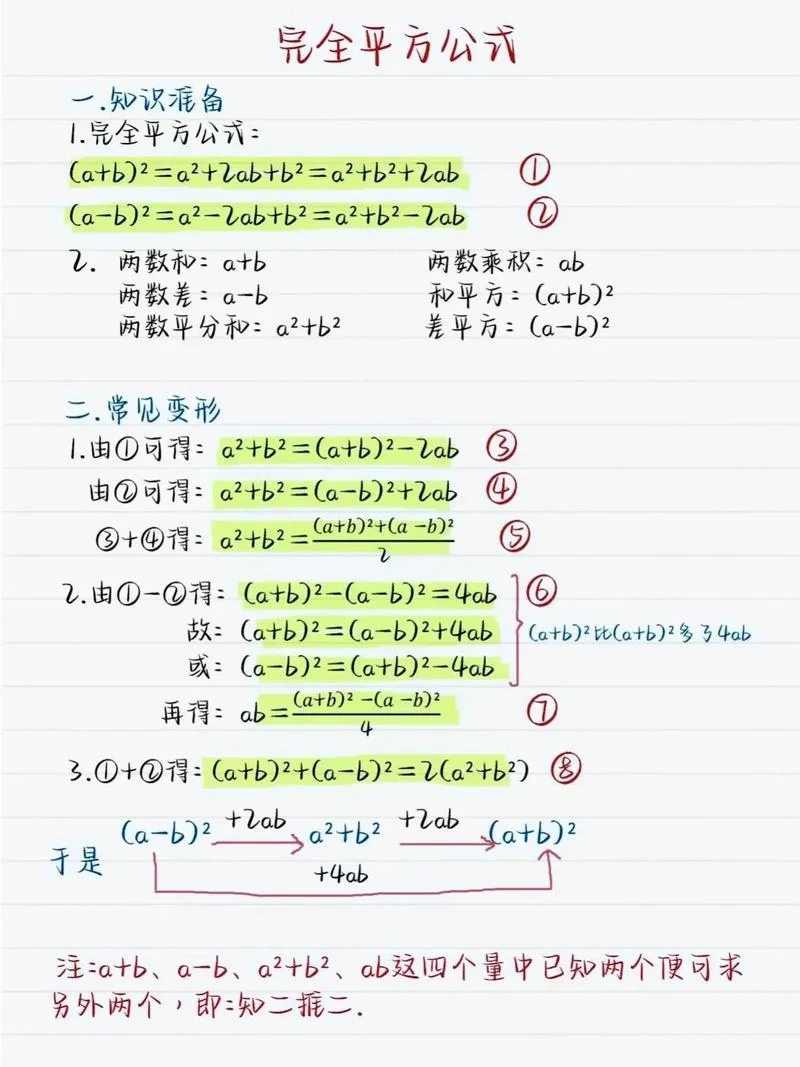 完全平方公式
一.知识准备
1.完全平方公式:
(a+b)²=a²+2ab+b²=a²+b²+2ab ①
(a-b)²=a²-2ab+b²=a²+b²-2ab ②
2. 两数和: a+b 两数乘积: ab
两数差: a-b 和平方: (a+b)²
两数平分和: a²+b² 差平方: (a-b)²
二.常见变形
1.由①可得: a²+b²=(a+b)²-2ab ③
由②可得: a²+b²=(a-b)²+2ab ④
③+④得: a²+b²=\frac{(a+b)²+(a-b)²}{2} ⑤
2.由①-②得: (a+b)²-(a-b)²=4ab ⑥
故: (a+b)²=(a-b)²+4ab (a+b)²比(a+b)²多了4ab
或: (a-b)²=(a+b)²-4ab
再得: ab=\frac{(a+b)²-(a-b)²}{4} ⑦
3.①+②得:(a+b)²+(a-b)²=2(a²+b²) ⑧
+2ab +2ab
于是 (a-b)² a²+b² (a+b)²
+4ab
注:a+b、a-b、a²+b²、ab这四个量中已知两个便可求
另外两个，即:知二推二.